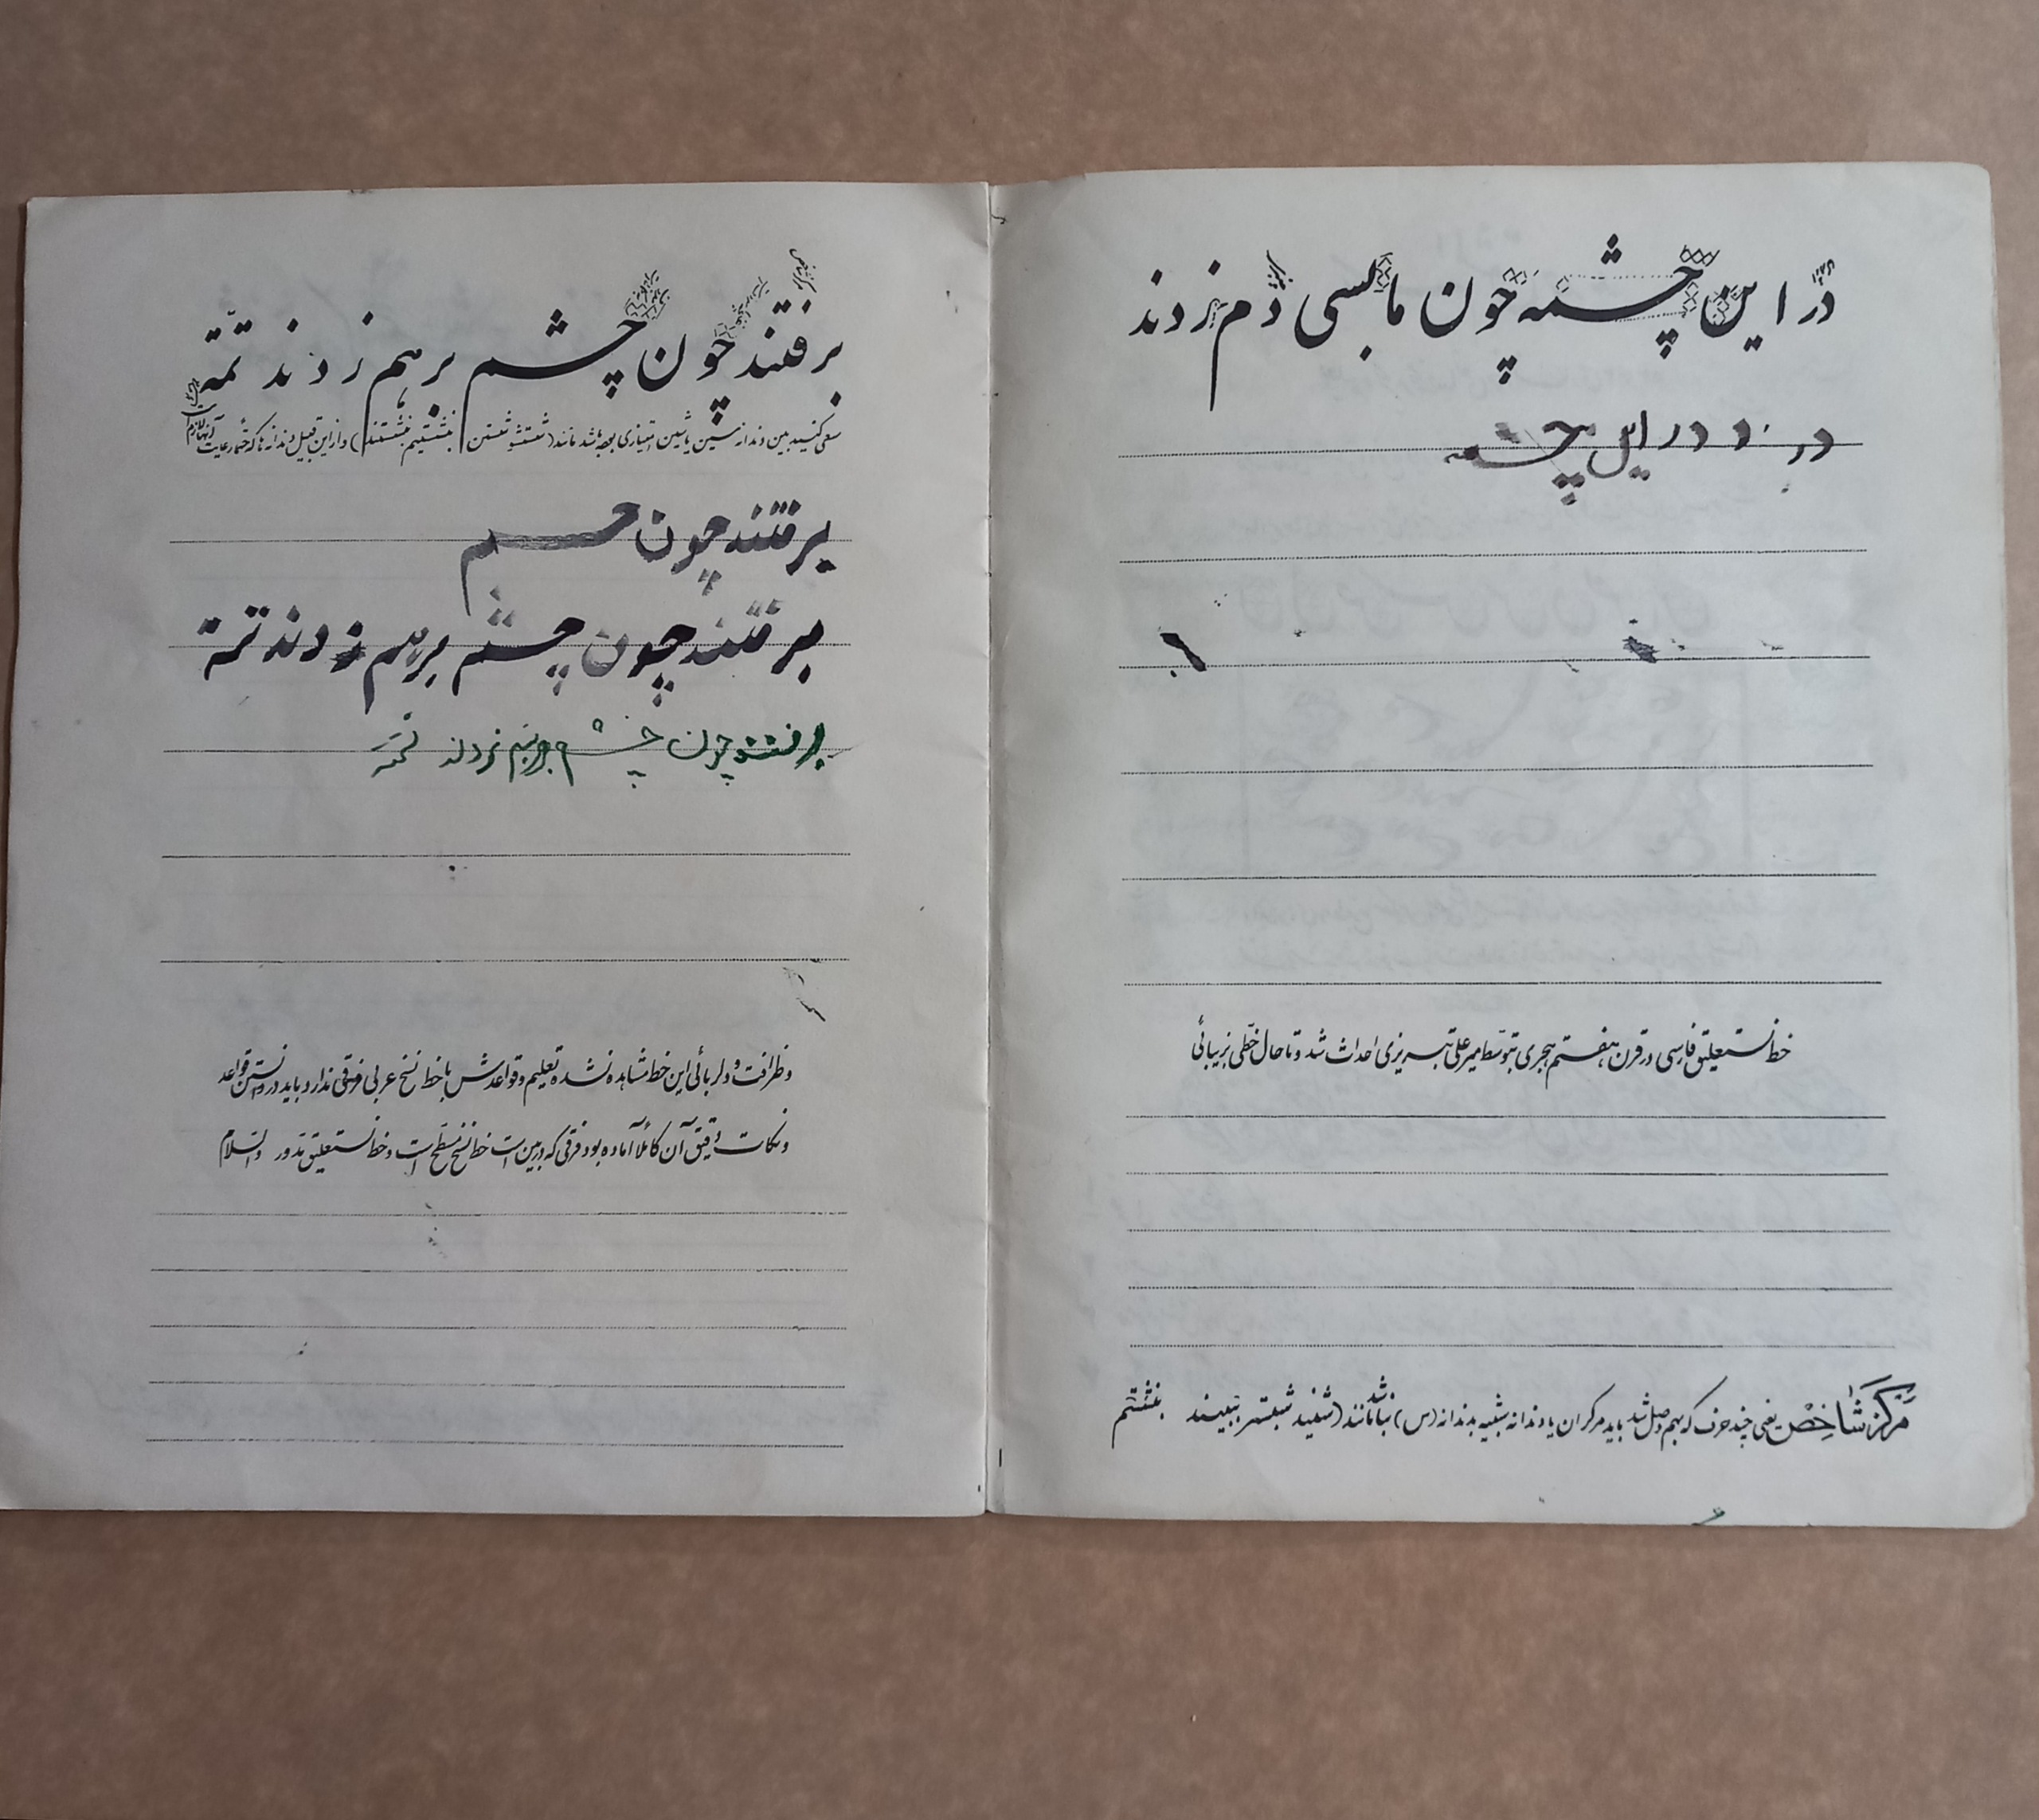 در این چشمه چون ما بسی دم زدند
در د در این چشمه
خط نستعلیق فارسی در قرن هفتم هجری بتوسط امیر علی تبریزی احداث شد و تا حال خطی بزیبائی
مرکز شاخص یعنی چند حرف که بهم وصل شد باید مرکز آن یا دندانه شبیه بدندانه (س) نباشد مانند (شنید شبستر ببینند بنشستم
برفتند چون چشم بر هم زدند تمة
سعی کنید بین دندانه سین یا شین امتیازی بوجه باشد مانند (شستشو شستن بنشستیم بنشستند) و از این قبیل دندانه ها که حتما رعایت آنها لازم است
برفتند چون حسم
برفتند چون چشم بر هم زدند تمة
برفتند چون چشم بر هم زدند تمة
و ظرافت و دلربائی این خط مشاهده نشده تعلیم و قواعدش با خط نسخ عربی فرقی ندارد و باید در دانستن قواعد
و نکات دقیق آن کاملاً آماده بود فرقی که در بین است خط نسخ مسطح است و خط نستعلیق مدور والسلام